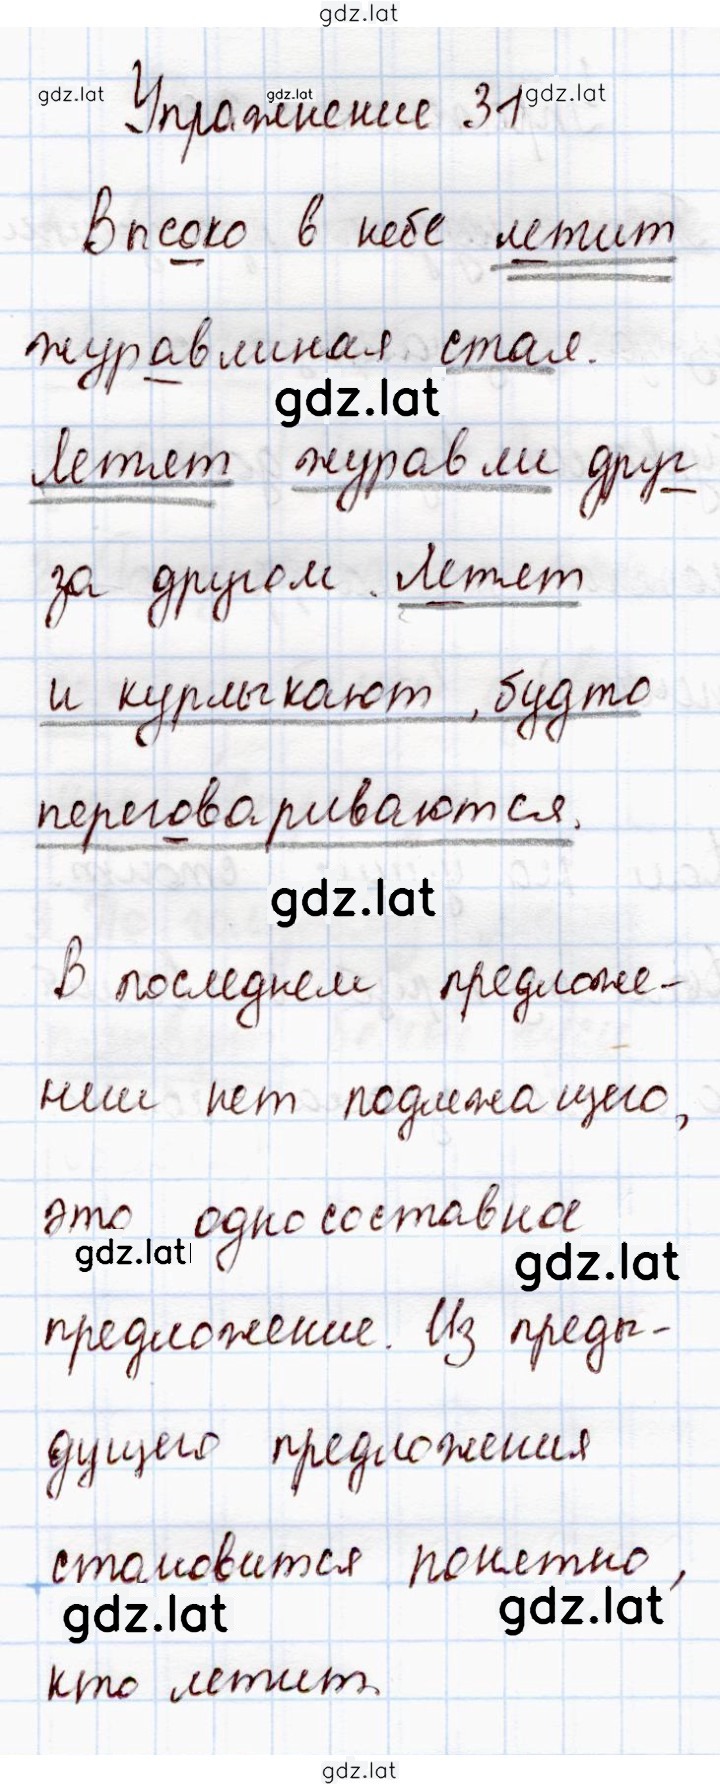 gdz.lat
gdz.lat gdz.lat gdz.lat
Упражнение 31
Высоко в небе летит
журавлиная стая.
gdz.lat
Летят журавли друг
за другом. Летят
и курлыкают, будто
переговариваются.
gdz.lat
В последнем предложе-
нии нет подлежащего,
это односоставное
gdz.lat gdz.lat
предложение. Из преды-
дущего предложения
становится понятно,
gdz.lat gdz.lat
кто летит.
gdz.lat